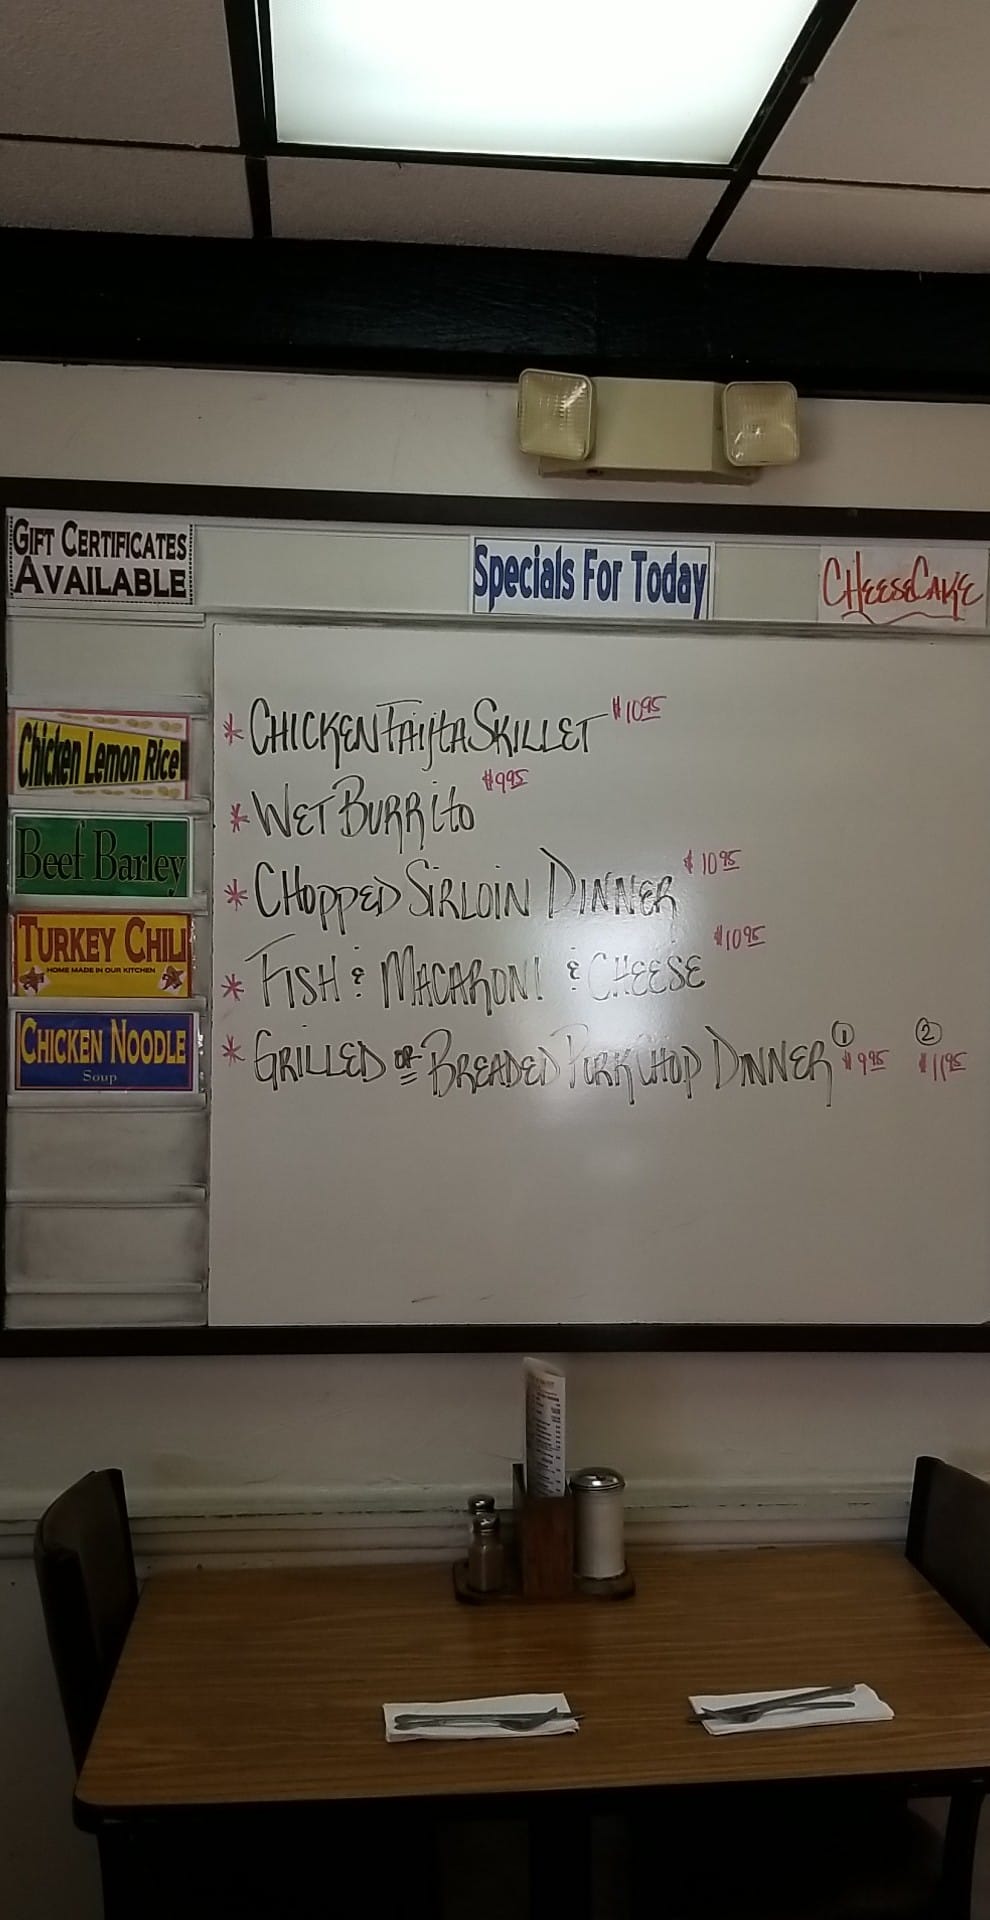 GIFT CERTIFICATES
AVAILABLE
Specials For Today
CHEESECAKE
Chicken Lemon Rice
Beef Barley
TURKEY CHILI
HOME MADE IN OUR KITCHEN
CHICKEN NOODLE
Soup
* CHICKEN FAIJITA SKILLET $10.95
* WET BURRITO $9.95
* CHOPPED SIRLOIN DINNER $10.95
* FISH & MACARONI & CHEESE $10.95
* GRILLED OR BREADED PORK CHOP DINNER ① $9.95 ② $11.95